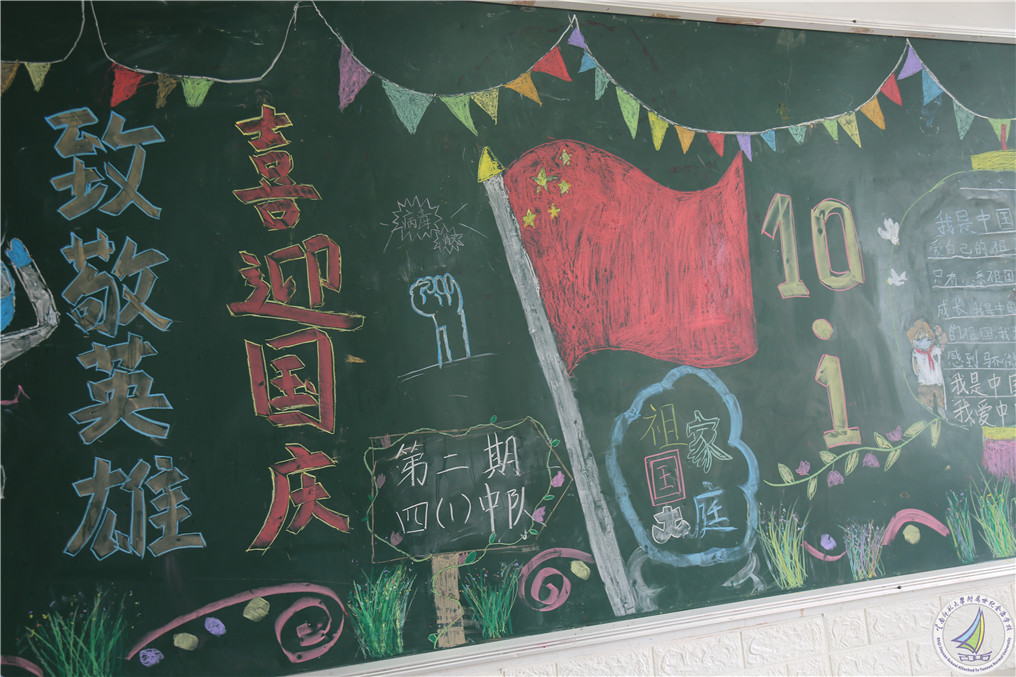 致敬英雄
喜迎国庆
病毒
第二期
四(1)中队
祖国大
家庭
10
1
我是中国
自己的祖
祖国
成长
的祖国,我
感到骄傲
我是中国
我爱中